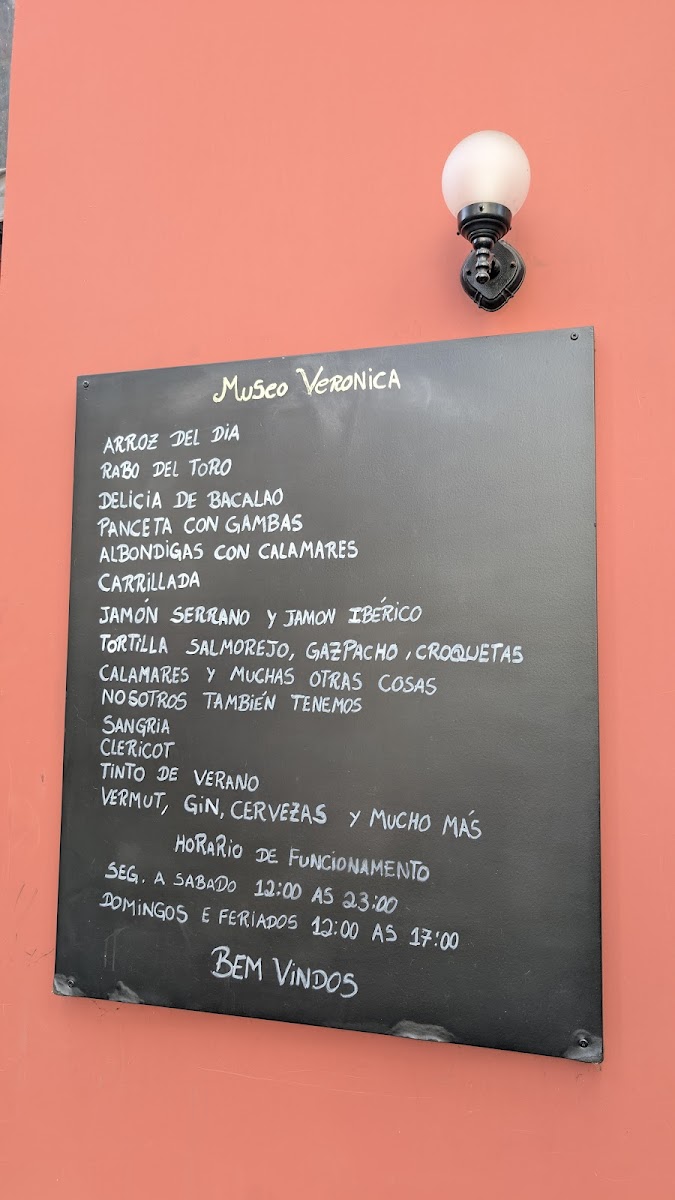 Museo Veronica
ARROZ DEL DIA
RABO DEL TORO
DELICIA DE BACALAO
PANCETA CON GAMBAS
ALBONDIGAS CON CALAMARES
CARRILLADA
JAMÓN SERRANO Y JAMON IBÉRICO
TORTILLA SALMOREJO, GAZPACHO, CROQUETAS
CALAMARES Y MUCHAS OTRAS COSAS
NOSOTROS TAMBIÉN TENEMOS
SANGRIA
CLERICOT
TINTO DE VERANO
VERMUT, GIN, CERVEZAS Y MUCHO MÁS
HORARIO DE FUNCIONAMENTO
SEG. A SABADO 12:00 AS 23:00
DOMINGOS E FERIADOS 12:00 AS 17:00
BEM VINDOS